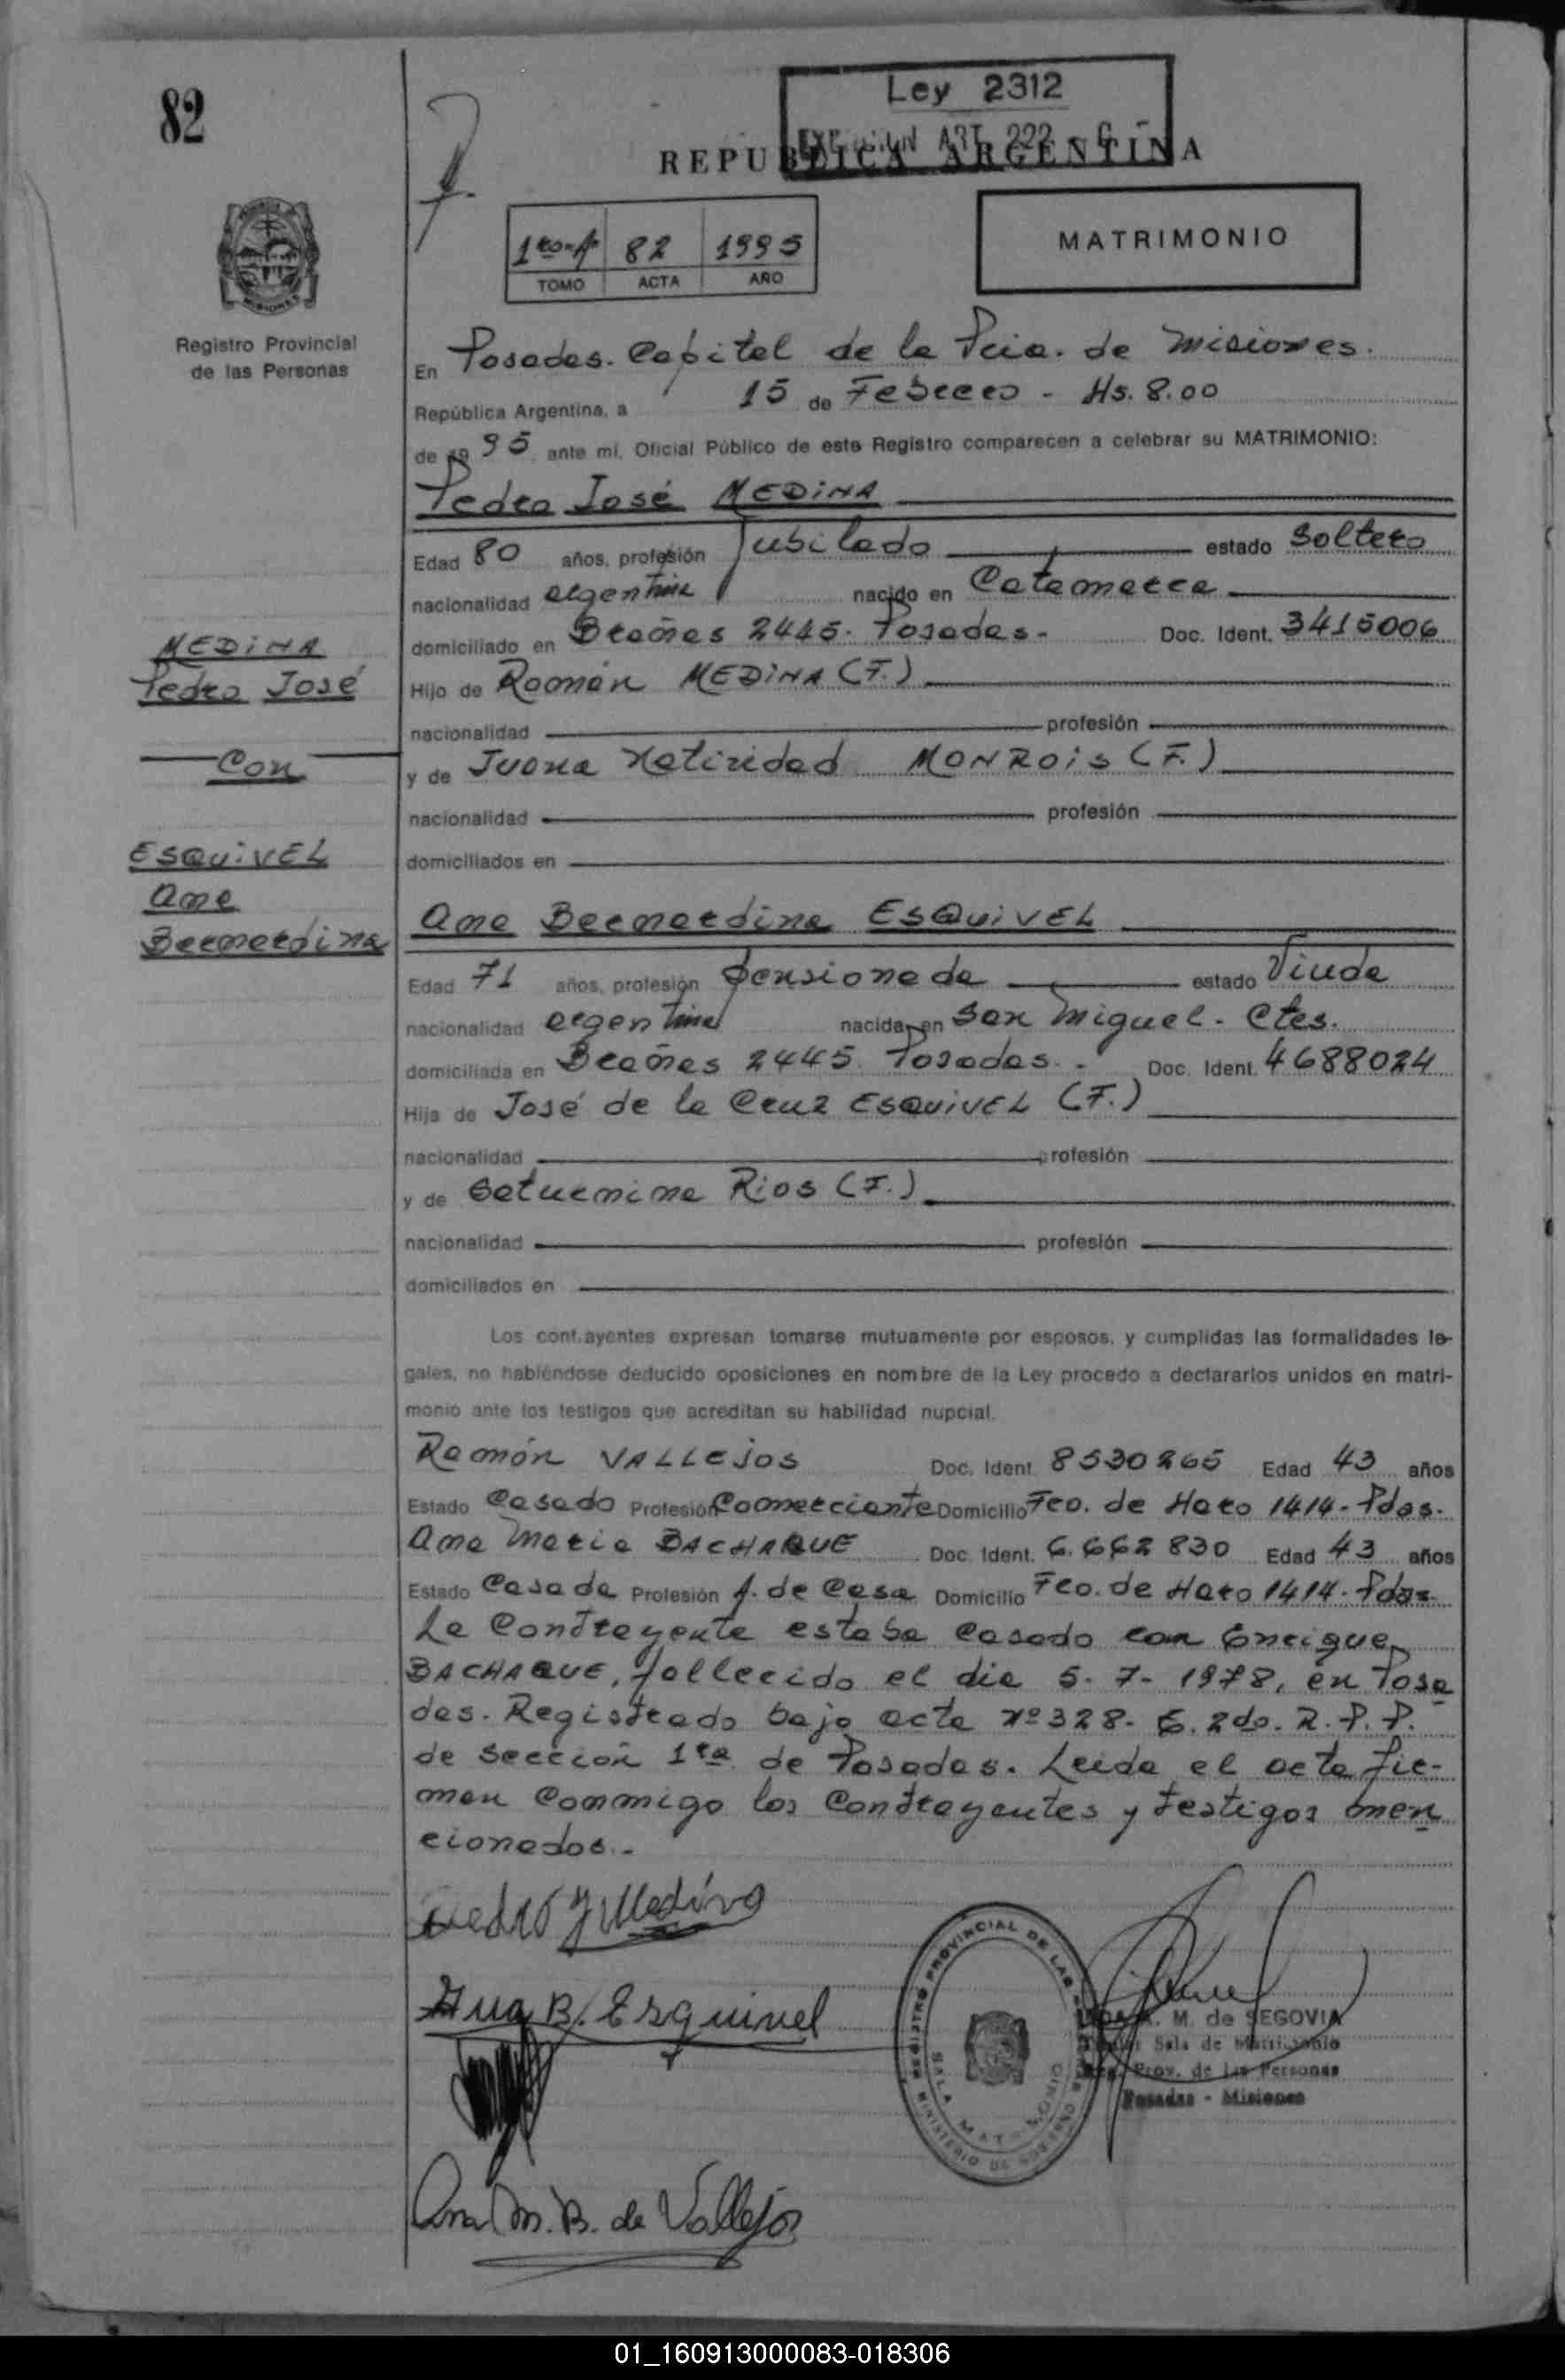 82
Ley 2312
ART. 222
REPUBLICA ARGENTINA
1ro-Aº 82 1995
TOMO ACTA AÑO
MATRIMONIO
Registro Provincial
de las Personas
En Posadas. Capital de la Pcia. de Misiones.
República Argentina, a 15 de Febrero - Hs. 8.00
de 19 95 ante mí, Oficial Público de este Registro comparecen a celebrar su MATRIMONIO:
Pedro José MEDINA
Edad 80 años, profesión Jubilado estado Soltero
nacionalidad argentina nacido en Catamarca
domiciliado en Brañas 2445. Posadas.- Doc. Ident. 3415006
Hijo de Ramón MEDINA (F.)
nacionalidad profesión
y de Juana Natividad MONROIS (F.)
nacionalidad profesión
domiciliados en
MEDINA
Pedro José
Con
ESQUIVEL
Ana
Bernardina
Ana Bernardina ESQUIVEL
Edad 71 años, profesión Pensionada estado Viuda
nacionalidad argentina nacida en San Miguel - Ctes.
domiciliada en Brañas 2445. Posadas.- Doc. Ident. 4688024
Hija de José de la Cruz ESQUIVEL (F.)
nacionalidad profesión
y de Saturnina Rios (F.)
nacionalidad profesión
domiciliados en
Los contrayentes expresan tomarse mutuamente por esposos, y cumplidas las formalidades le-
gales, no habiéndose deducido oposiciones en nombre de la Ley procedo a declararlos unidos en matri-
monio ante los testigos que acreditan su habilidad nupcial.
Ramón VALLEJOS Doc. Ident. 8530265 Edad 43 años
Estado Casado Profesión Comerciante Domicilio Fco. de Haro 1414- Pdas.
Ana Maria BACHAQUE Doc. Ident. 6.662830 Edad 43 años
Estado Casada Profesión A. de Casa Domicilio Fco. de Haro 1414- Pdas
La Contrayente estaba casado con Enrique
BACHAQUE, fallecido el dia 5-7-1978, en Posa
das. Registrado bajo acta nº 328- 2do. R.P.P.
de Sección 1ra de Posadas. Leida el acta fir-
man conmigo los contrayentes y testigos men
cionados.-
Pedro J Medina
Ana B. Esquivel
Ana M. B. de Vallejos
REGISTRO PROVINCIAL DE LAS
SALA MATRIMONIO
MINISTERIO DE GOBIERNO
M. de SEGOVIA
Sala de Matrimonio
Reg. Prov. de las Personas
Posadas - Misiones
01_160913000083-018306